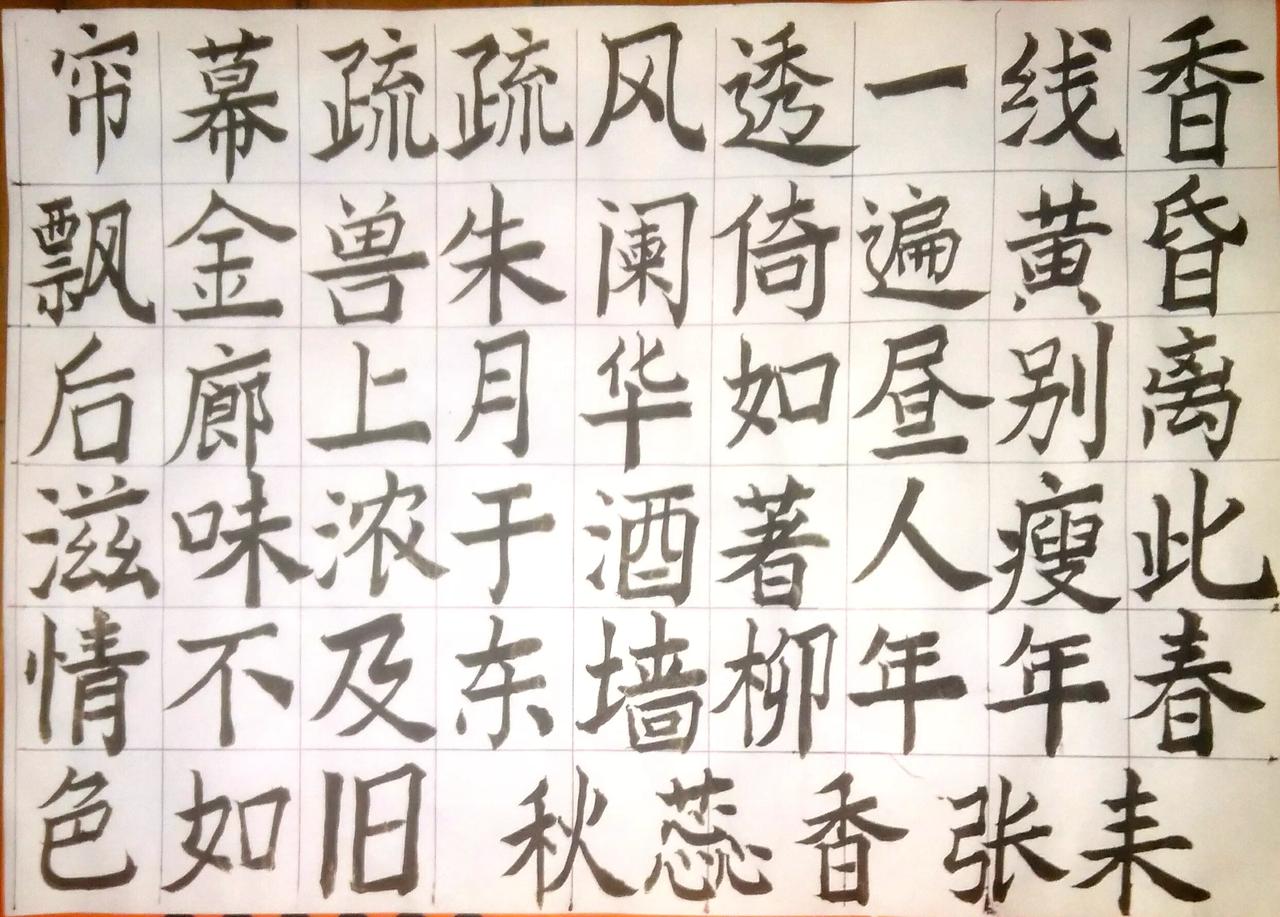 帘幕疏疏风透一线香
飘金兽朱阑倚遍黄昏
后廊上月华如昼别离
滋味浓于酒著人瘦此
情不及东墙柳年年春
色如旧 秋蕊香 张耒